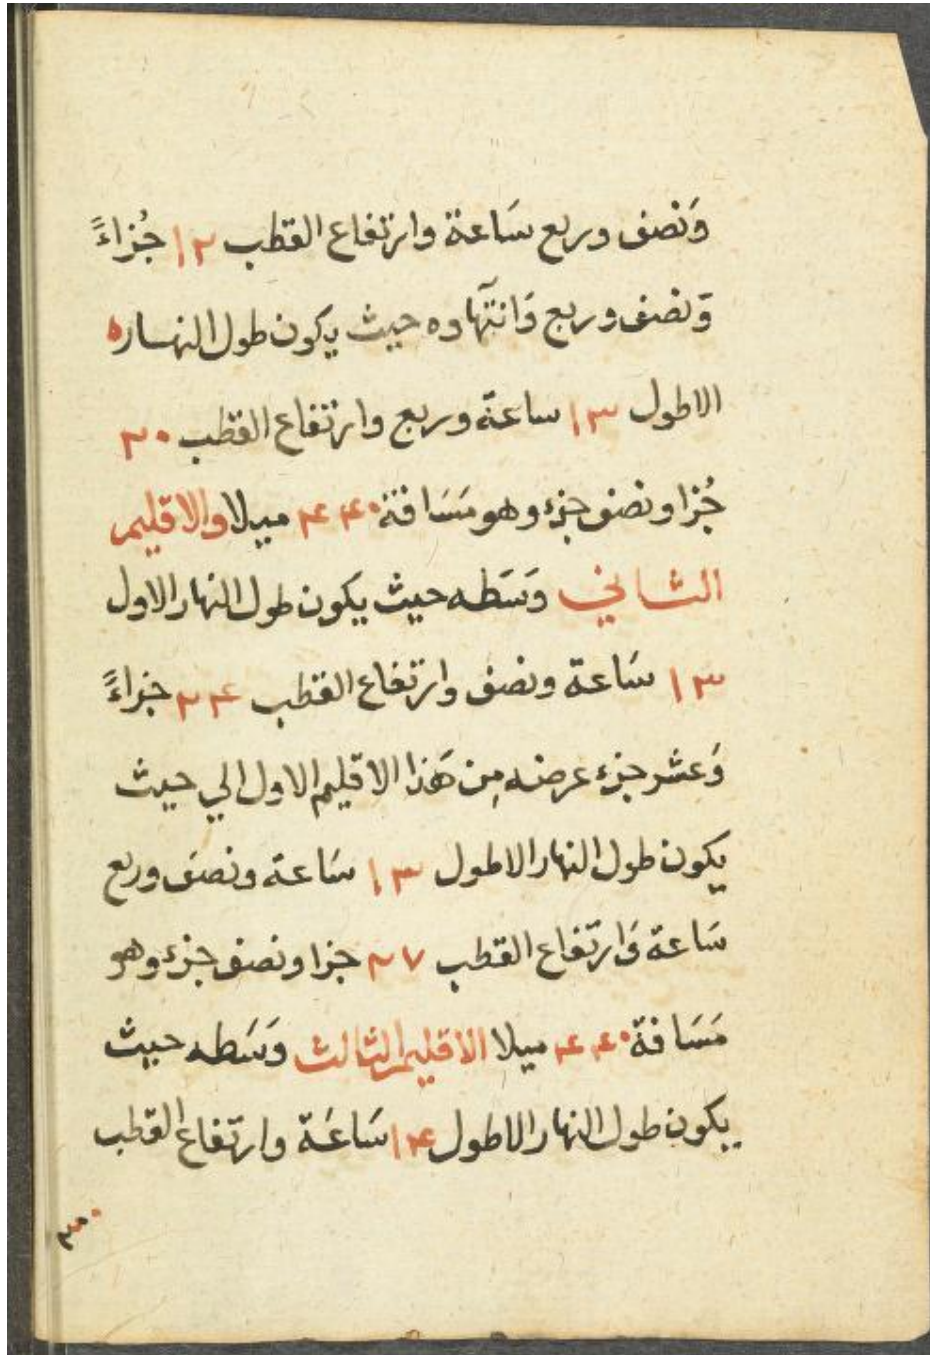 وَنصف وربع سَاعة وارتفاع القطب ١٢ جُزاءً
وَنصف وربع وَانتهَآوه حيث يكون طول النهـاره
الاطول ١٣ ساعة وربع وارتفاع القطب ٢٠
جُزا ونصف جزء وهو مَسَافة ٤٤٠ ميلا والاقليم
الثـاني وَسَطه حيث يكون طول النهار الاول
١٣ سَاعة ونصف وارتفاع القطب ٢٤ جزاءً
وَعشر جزء عرضه مِن هَذا الاقليم الاول الي حيث
يكون طول النهار الاطول ١٣ سَاعة ونصف وربع
سَاعة وَارتفاع القطب ٢٧ جزا ونصف جزء وهو
مَسَافة ٤٤٠ ميلا الاقليم الثالث وَسَطه حيث
يكون طول النهار الاطول ١٤ سَاعَة وارتفاع القطب
٣٠